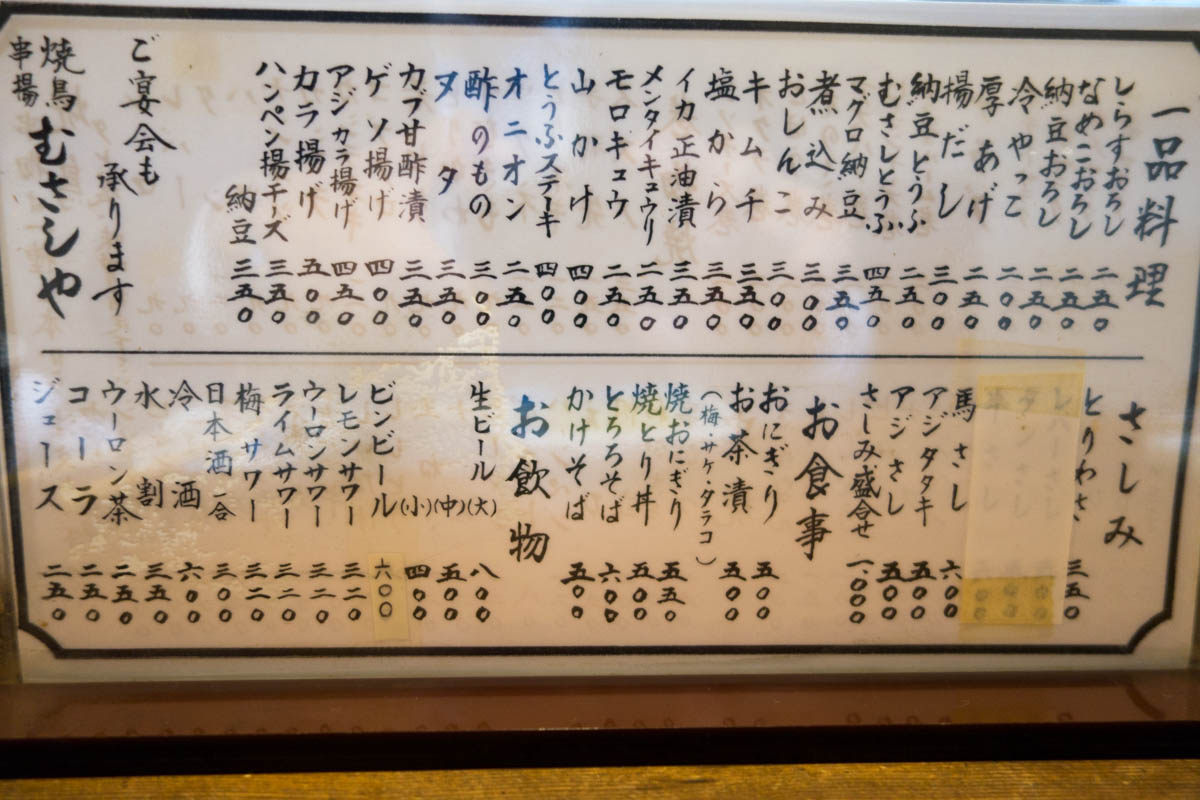 一品料理
しらすおろし 二五〇
なめこおろし 二五〇
納豆おろし 二五〇
冷やっこ 二〇〇
厚あげ 二五〇
揚だし 三〇〇
納豆とうふ 二五〇
むさしとうふ 四五〇
マグロ納豆 三五〇
煮込み 三〇〇
おしんこ 三〇〇
キムチ 三五〇
塩から 三五〇
イカ正油漬 三五〇
メンタイキュウリ 二五〇
モロキュウ 二五〇
山かけ 四〇〇
とうふステーキ 四〇〇
オニオン 二五〇
酢のもの 三〇〇
ヌタ 三五〇
カブ甘酢漬 三五〇
ゲソ揚げ 四〇〇
アジカラ揚げ 四五〇
カラ揚げ 五〇〇
ハンペン揚チーズ 三五〇
納豆 三五〇
ご宴会も
承ります
焼鳥
串揚
むさしや
さしみ
とりわさ 三五〇
馬さし 六〇〇
アジタタキ 五〇〇
アジさし 五〇〇
さしみ盛合せ 一、〇〇〇
お食事
おにぎり 五〇〇
お茶漬 五〇〇
(梅・サケ・タラコ)
焼おにぎり 五五〇
焼とり丼 五〇〇
とろろそば 六〇〇
かけそば 五〇〇
お飲物
生ビール(大) 八〇〇
(中) 五〇〇
(小) 四〇〇
ビンビール 六〇〇
レモンサワー 三二〇
ウーロンサワー 三二〇
ライムサワー 三二〇
梅サワー 三二〇
日本酒一合 三〇〇
冷酒 六〇〇
水割 三五〇
ウーロン茶 二五〇
コーラ 二五〇
ジュース 二五〇